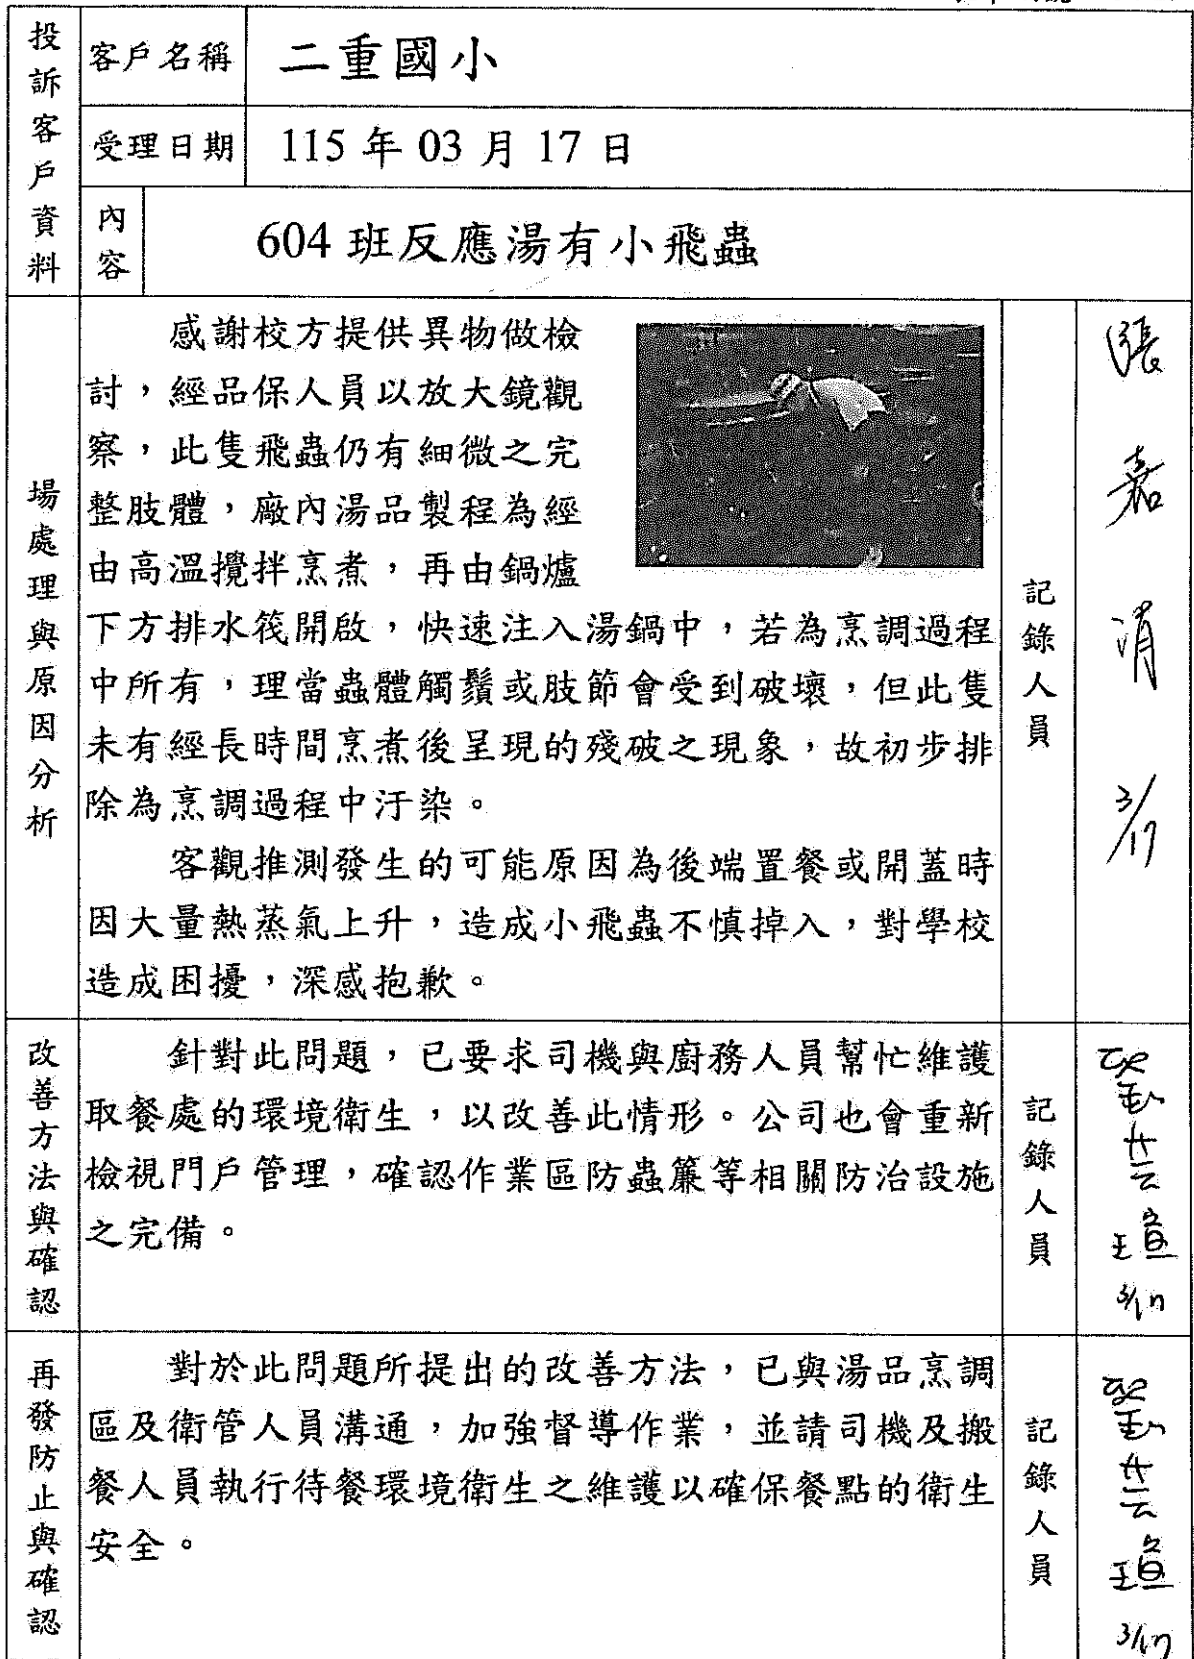 投訴客戶資料
客戶名稱 二重國小
受理日期 115 年 03 月 17 日
內容 604 班反應湯有小飛蟲
場處理與原因分析
感謝校方提供異物做檢
討，經品保人員以放大鏡觀
察，此隻飛蟲仍有細微之完
整肢體，廠內湯品製程為經
由高溫攪拌烹煮，再由鍋爐
下方排水筏開啟，快速注入湯鍋中，若為烹調過程
中所有，理當蟲體觸鬚或肢節會受到破壞，但此隻
未有經長時間烹煮後呈現的殘破之現象，故初步排
除為烹調過程中汙染。
客觀推測發生的可能原因為後端置餐或開蓋時
因大量熱蒸氣上升，造成小飛蟲不慎掉入，對學校
造成困擾，深感抱歉。
記錄人員
張嘉涓 3/17
改善方法與確認
針對此問題，已要求司機與廚務人員幫忙維護
取餐處的環境衛生，以改善此情形。公司也會重新
檢視門戶管理，確認作業區防蟲簾等相關防治設施
之完備。
記錄人員
3/17
再發防止與確認
對於此問題所提出的改善方法，已與湯品烹調
區及衛管人員溝通，加強督導作業，並請司機及搬
餐人員執行待餐環境衛生之維護以確保餐點的衛生
安全。
記錄人員
3/17